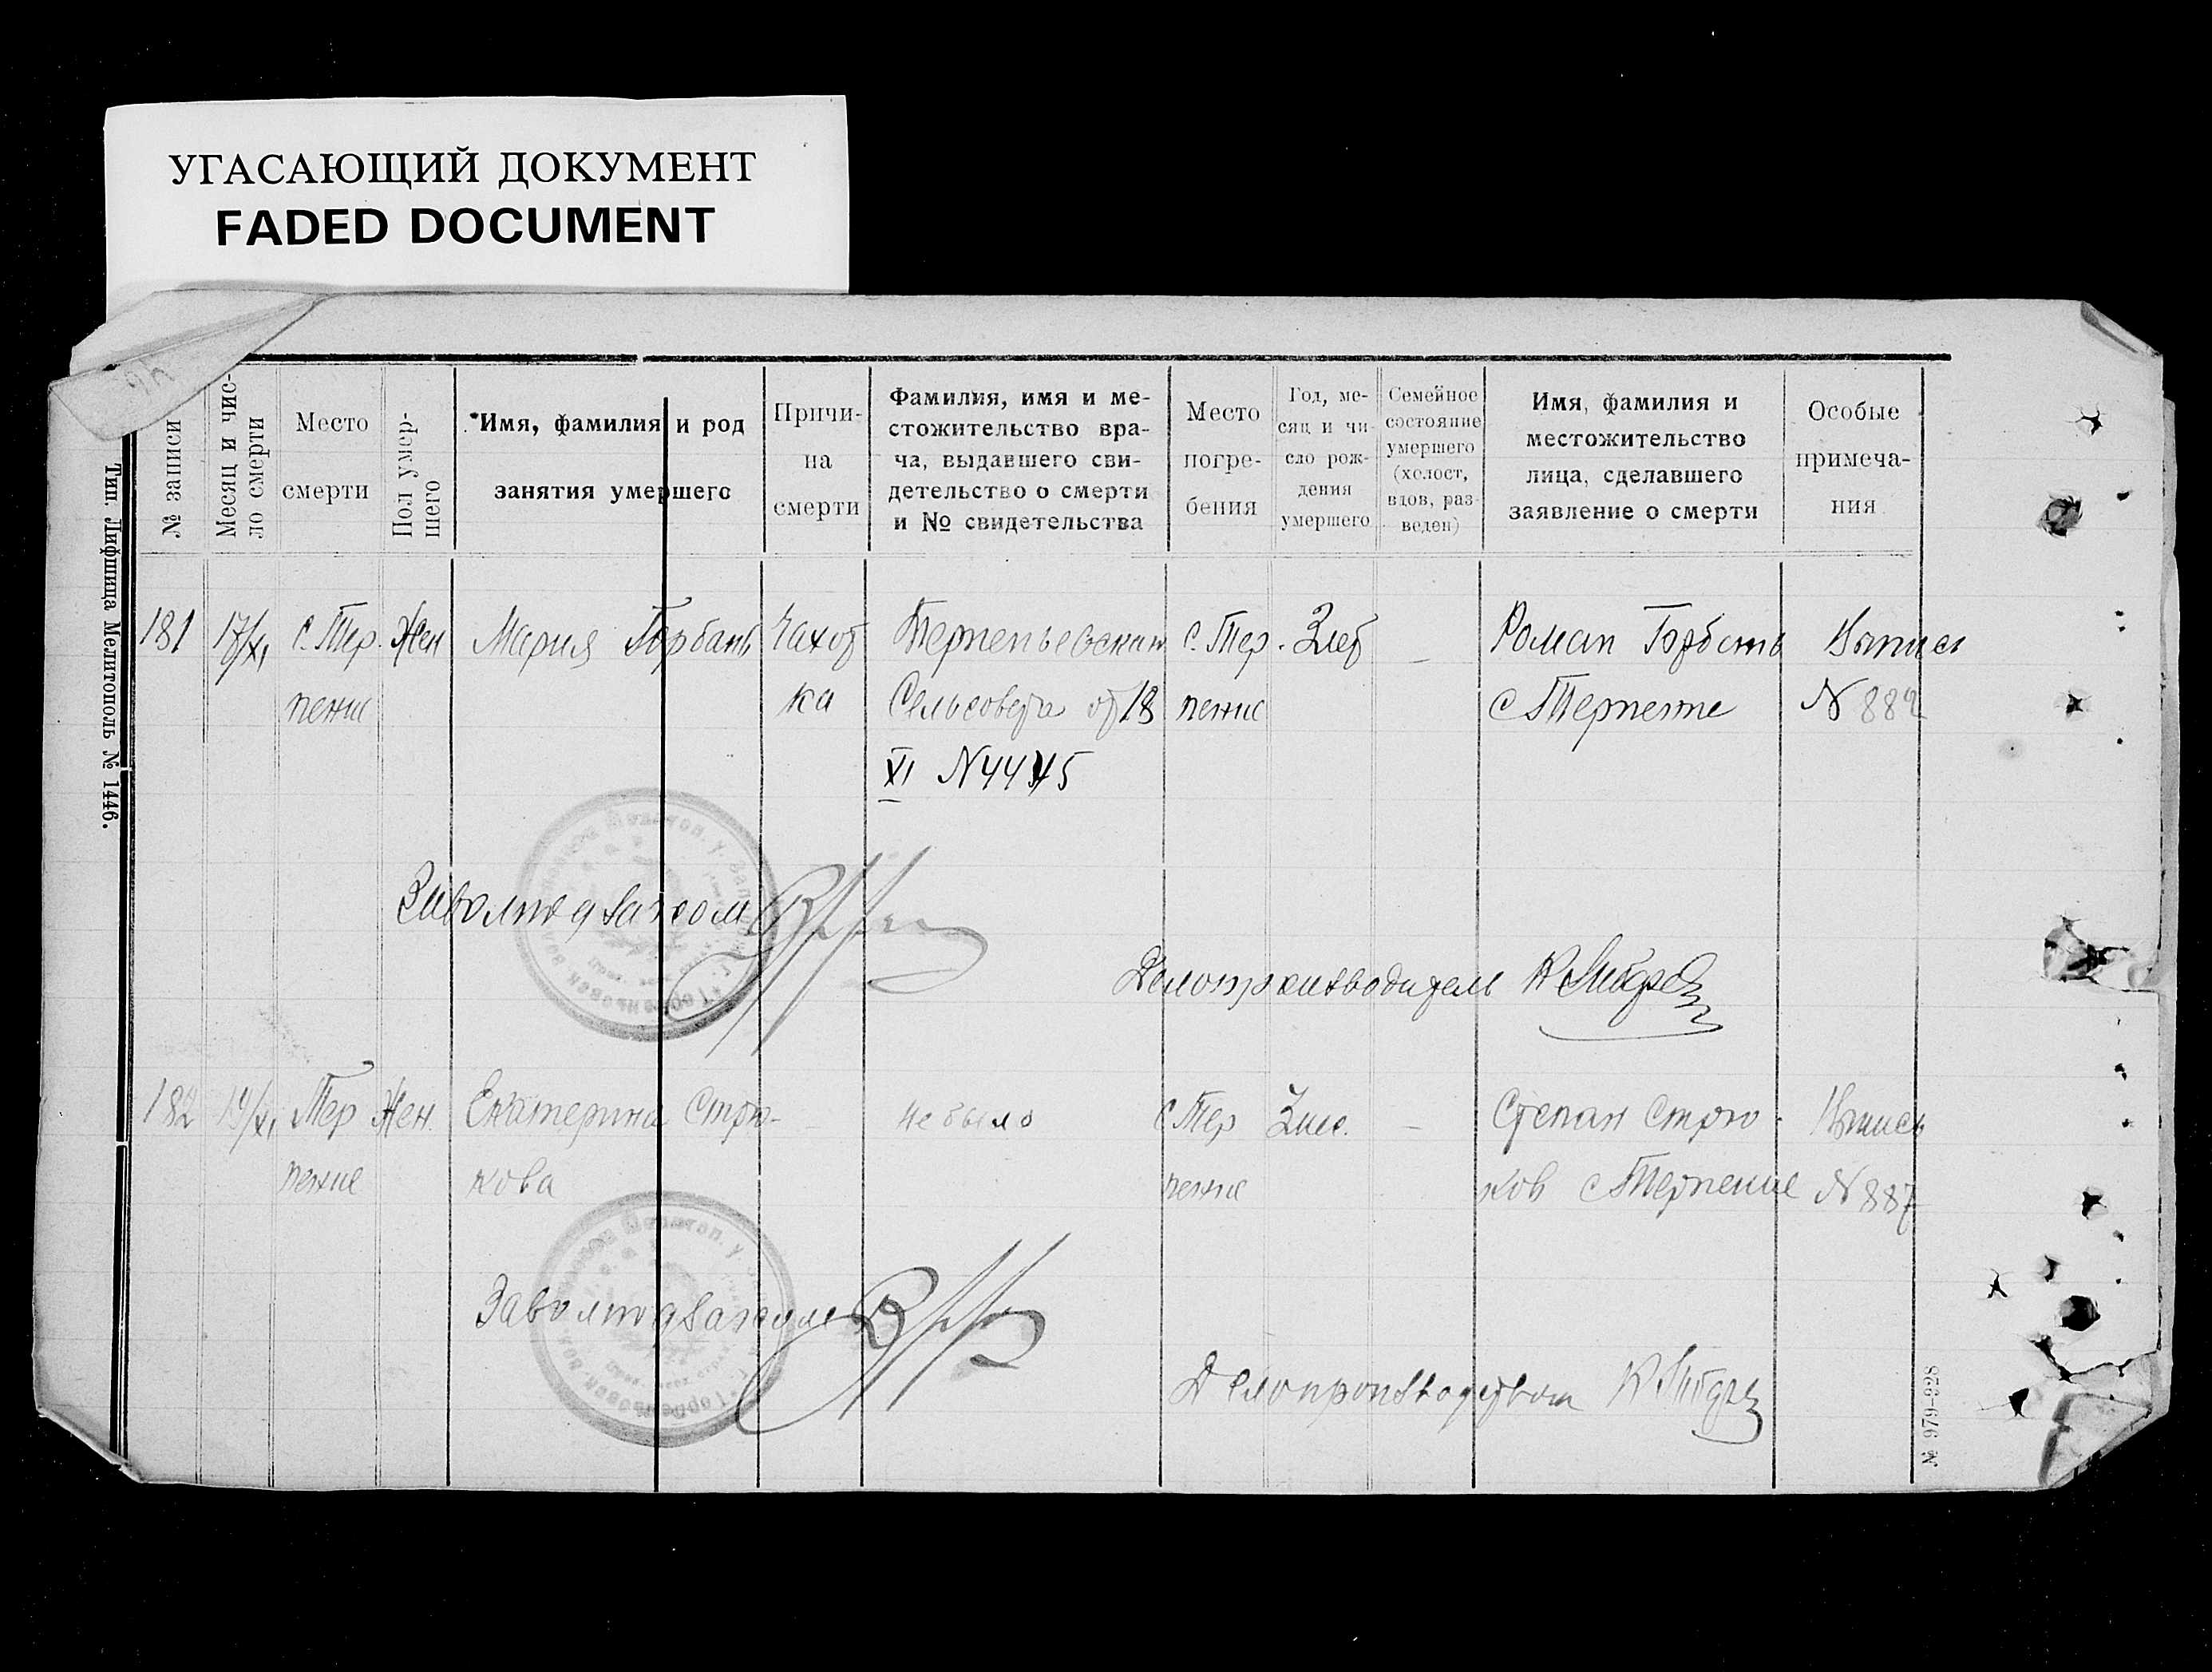 УГАСАЮЩИЙ ДОКУМЕНТ
FADED DOCUMENT
Тип. Лифшица Мелитополь № 1446.
№ записи
Месяц и чис-
ло смерти
Место
смерти
Пол умер-
шего
Имя, фамилия и род
занятия умершего
Причи-
на
смерти
Фамилия, имя и ме-
стожительство вра-
ча, выдавшего сви-
детельство о смерти
и № свидетельства
Место
погре-
бения
Год, ме-
сяц и чи-
сло рож-
дения
умершего
Семейное
состояние
умершего
(холост,
вдов, раз-
веден)
Имя, фамилия и
местожительство
лица, сделавшего
заявление о смерти
Особые
примеча-
ния
181
17/XI
с. Тер.
пение
Жен
Мария Горбань
Чахот
ка
Терпеньевским
Сельсовета от 18
XI N 4445
с. Тер.
пение
3 лет
—
Роман Горбань
с Терпение
Выпись
N 882
Делопроизводитель
182
19/XI
Тер
пение
Жен.
Екатерина Стрю-
кова
не было
с Тер
пение
—
Степан Стрю-
ков с Терпение
Выпись
N 887
№ 979-928